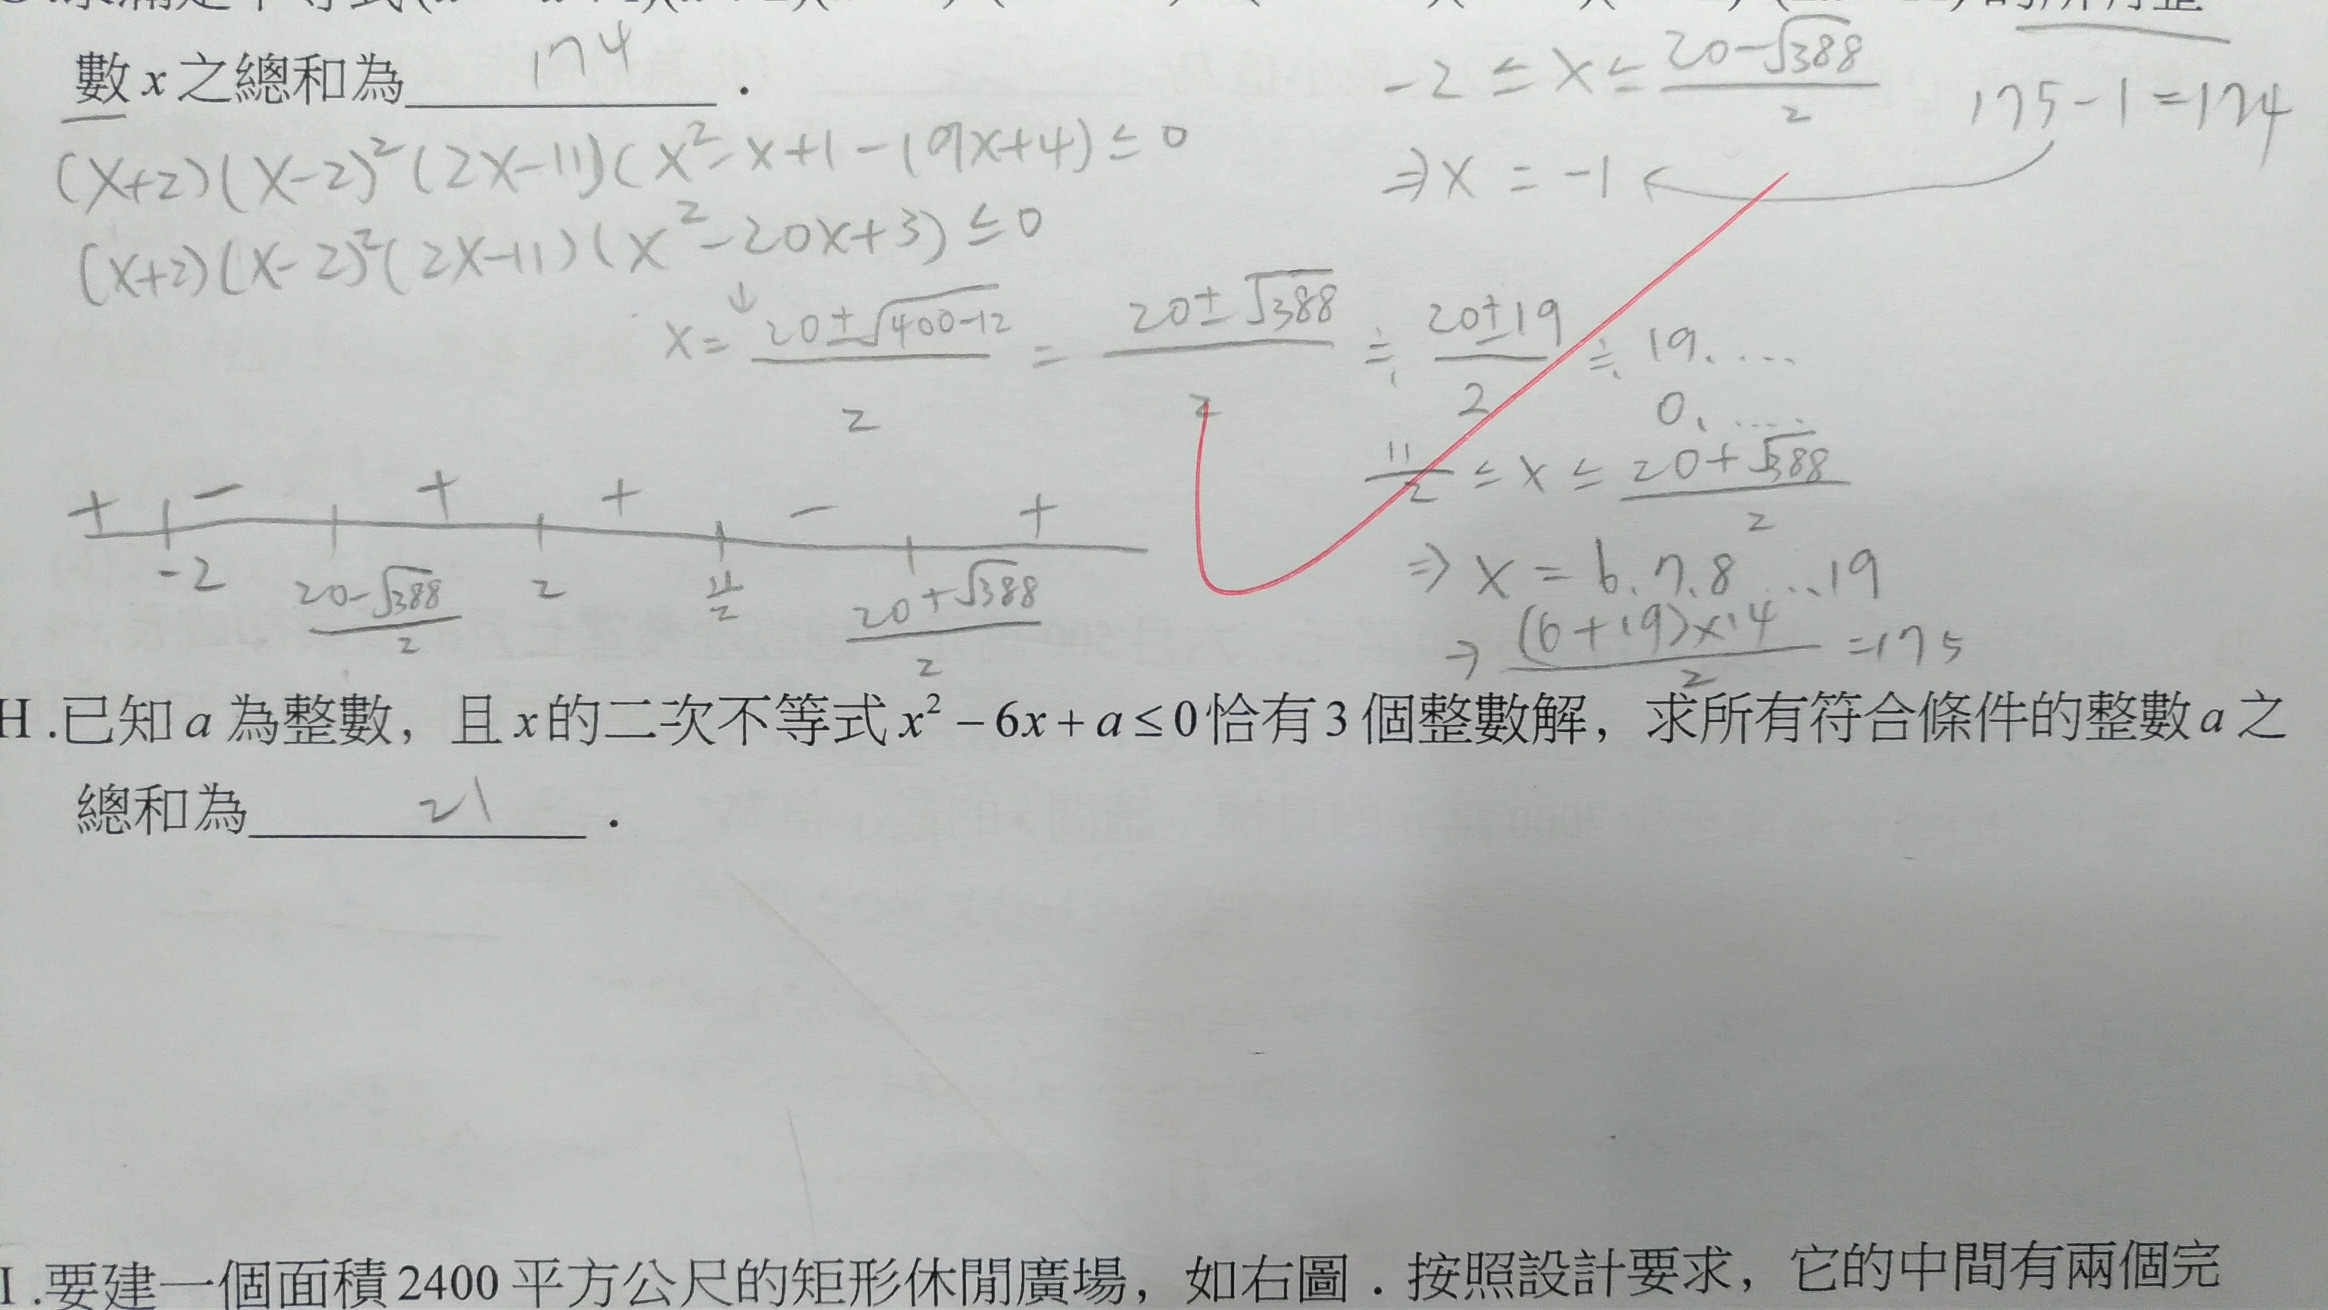 的所有整
數x之總和為 174 .
(x+2)(x-2)²(2x-11)(x²-x+1-19x+4)≤0
(x+2)(x-2)²(2x-11)(x²-20x+3)≤0
x= (20±√400-12)/2 = (20±√388)/2 ≒ (20±19)/2 ≒ 19.....
0.....
+ - + + - +
-2 (20-√388)/2 2 11/2 (20+√388)/2
-2 ≤ x ≤ (20-√388)/2
⇒ x = -1
175-1=174
11/2 ≤ x ≤ (20+√388)/2
⇒ x = 6.7.8...19
→ (6+19)×14/2 =175
H.已知a為整數，且x的二次不等式x²-6x+a≤0恰有3個整數解，求所有符合條件的整數a之
總和為 21 .
I.要建一個面積2400平方公尺的矩形休閒廣場，如右圖．按照設計要求，它的中間有兩個完